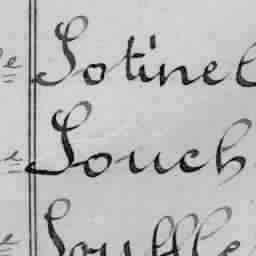 e Sotinel
e Souch
e Souffle